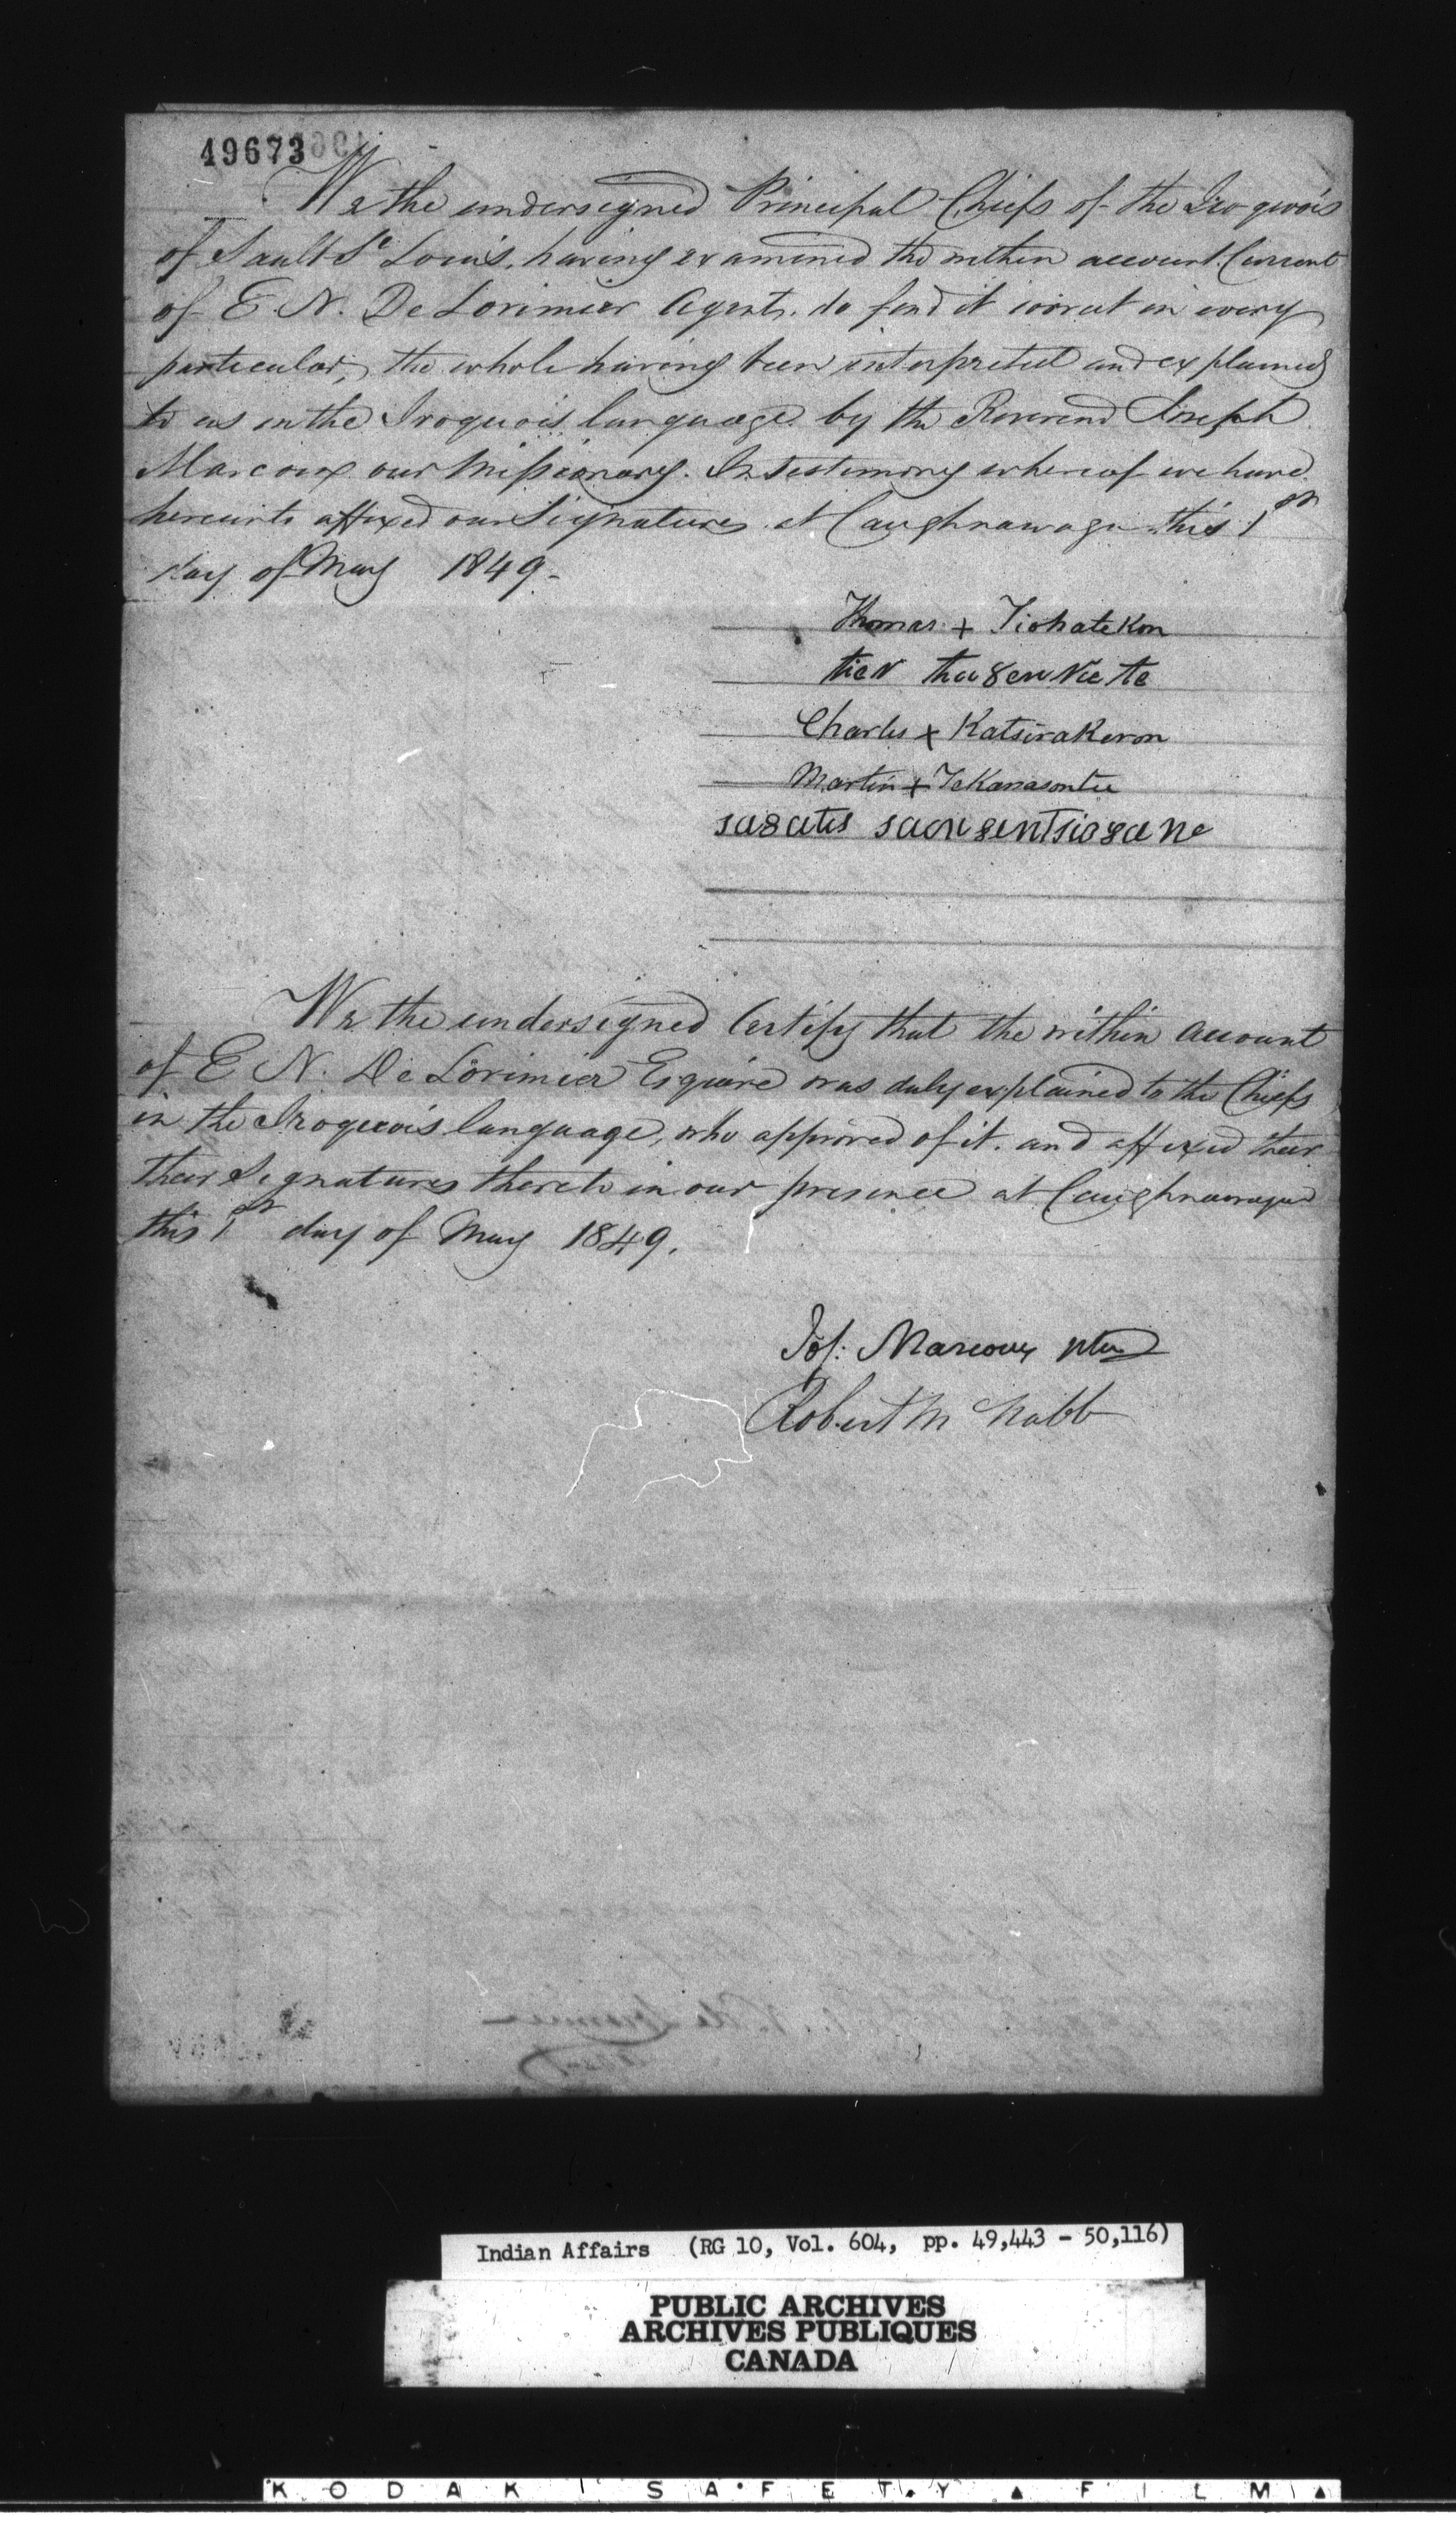 49673
We the undersigned Principal Chiefs of the Iroquois
of Sault St Louis, having examined the within account Current
of E. N. De Lorimier Agent, do find it correct in every
particular, the whole having been interpreted and explained
to us in the Iroquois language by the Reverend Joseph
Marcoux our Missionary. In testimony whereof we have
hereunto affixed our Signatures at Caughnawaga this 1st
day of May 1849-
Thomas + Tiohatekon
tier tha8enrie te
Charles x Katsirakeron
Martin + Tekanasontie
sa8atis saon8entsio8ane
We the undersigned Certify that the within account
of E N. De Lorimier Esquire was duly explained to the Chiefs
in the Iroquois language, who approved of it. and affixed their
their Signatures thereto in our presence at Caughnawaga
this 1st day of May 1849.
Jos: Marcoux ptre
Robert McNabb
Indian Affairs (RG 10, Vol. 604, pp. 49,443 - 50,116)
PUBLIC ARCHIVES
ARCHIVES PUBLIQUES
CANADA
KODAK SAFETY ▲ FILM ▲